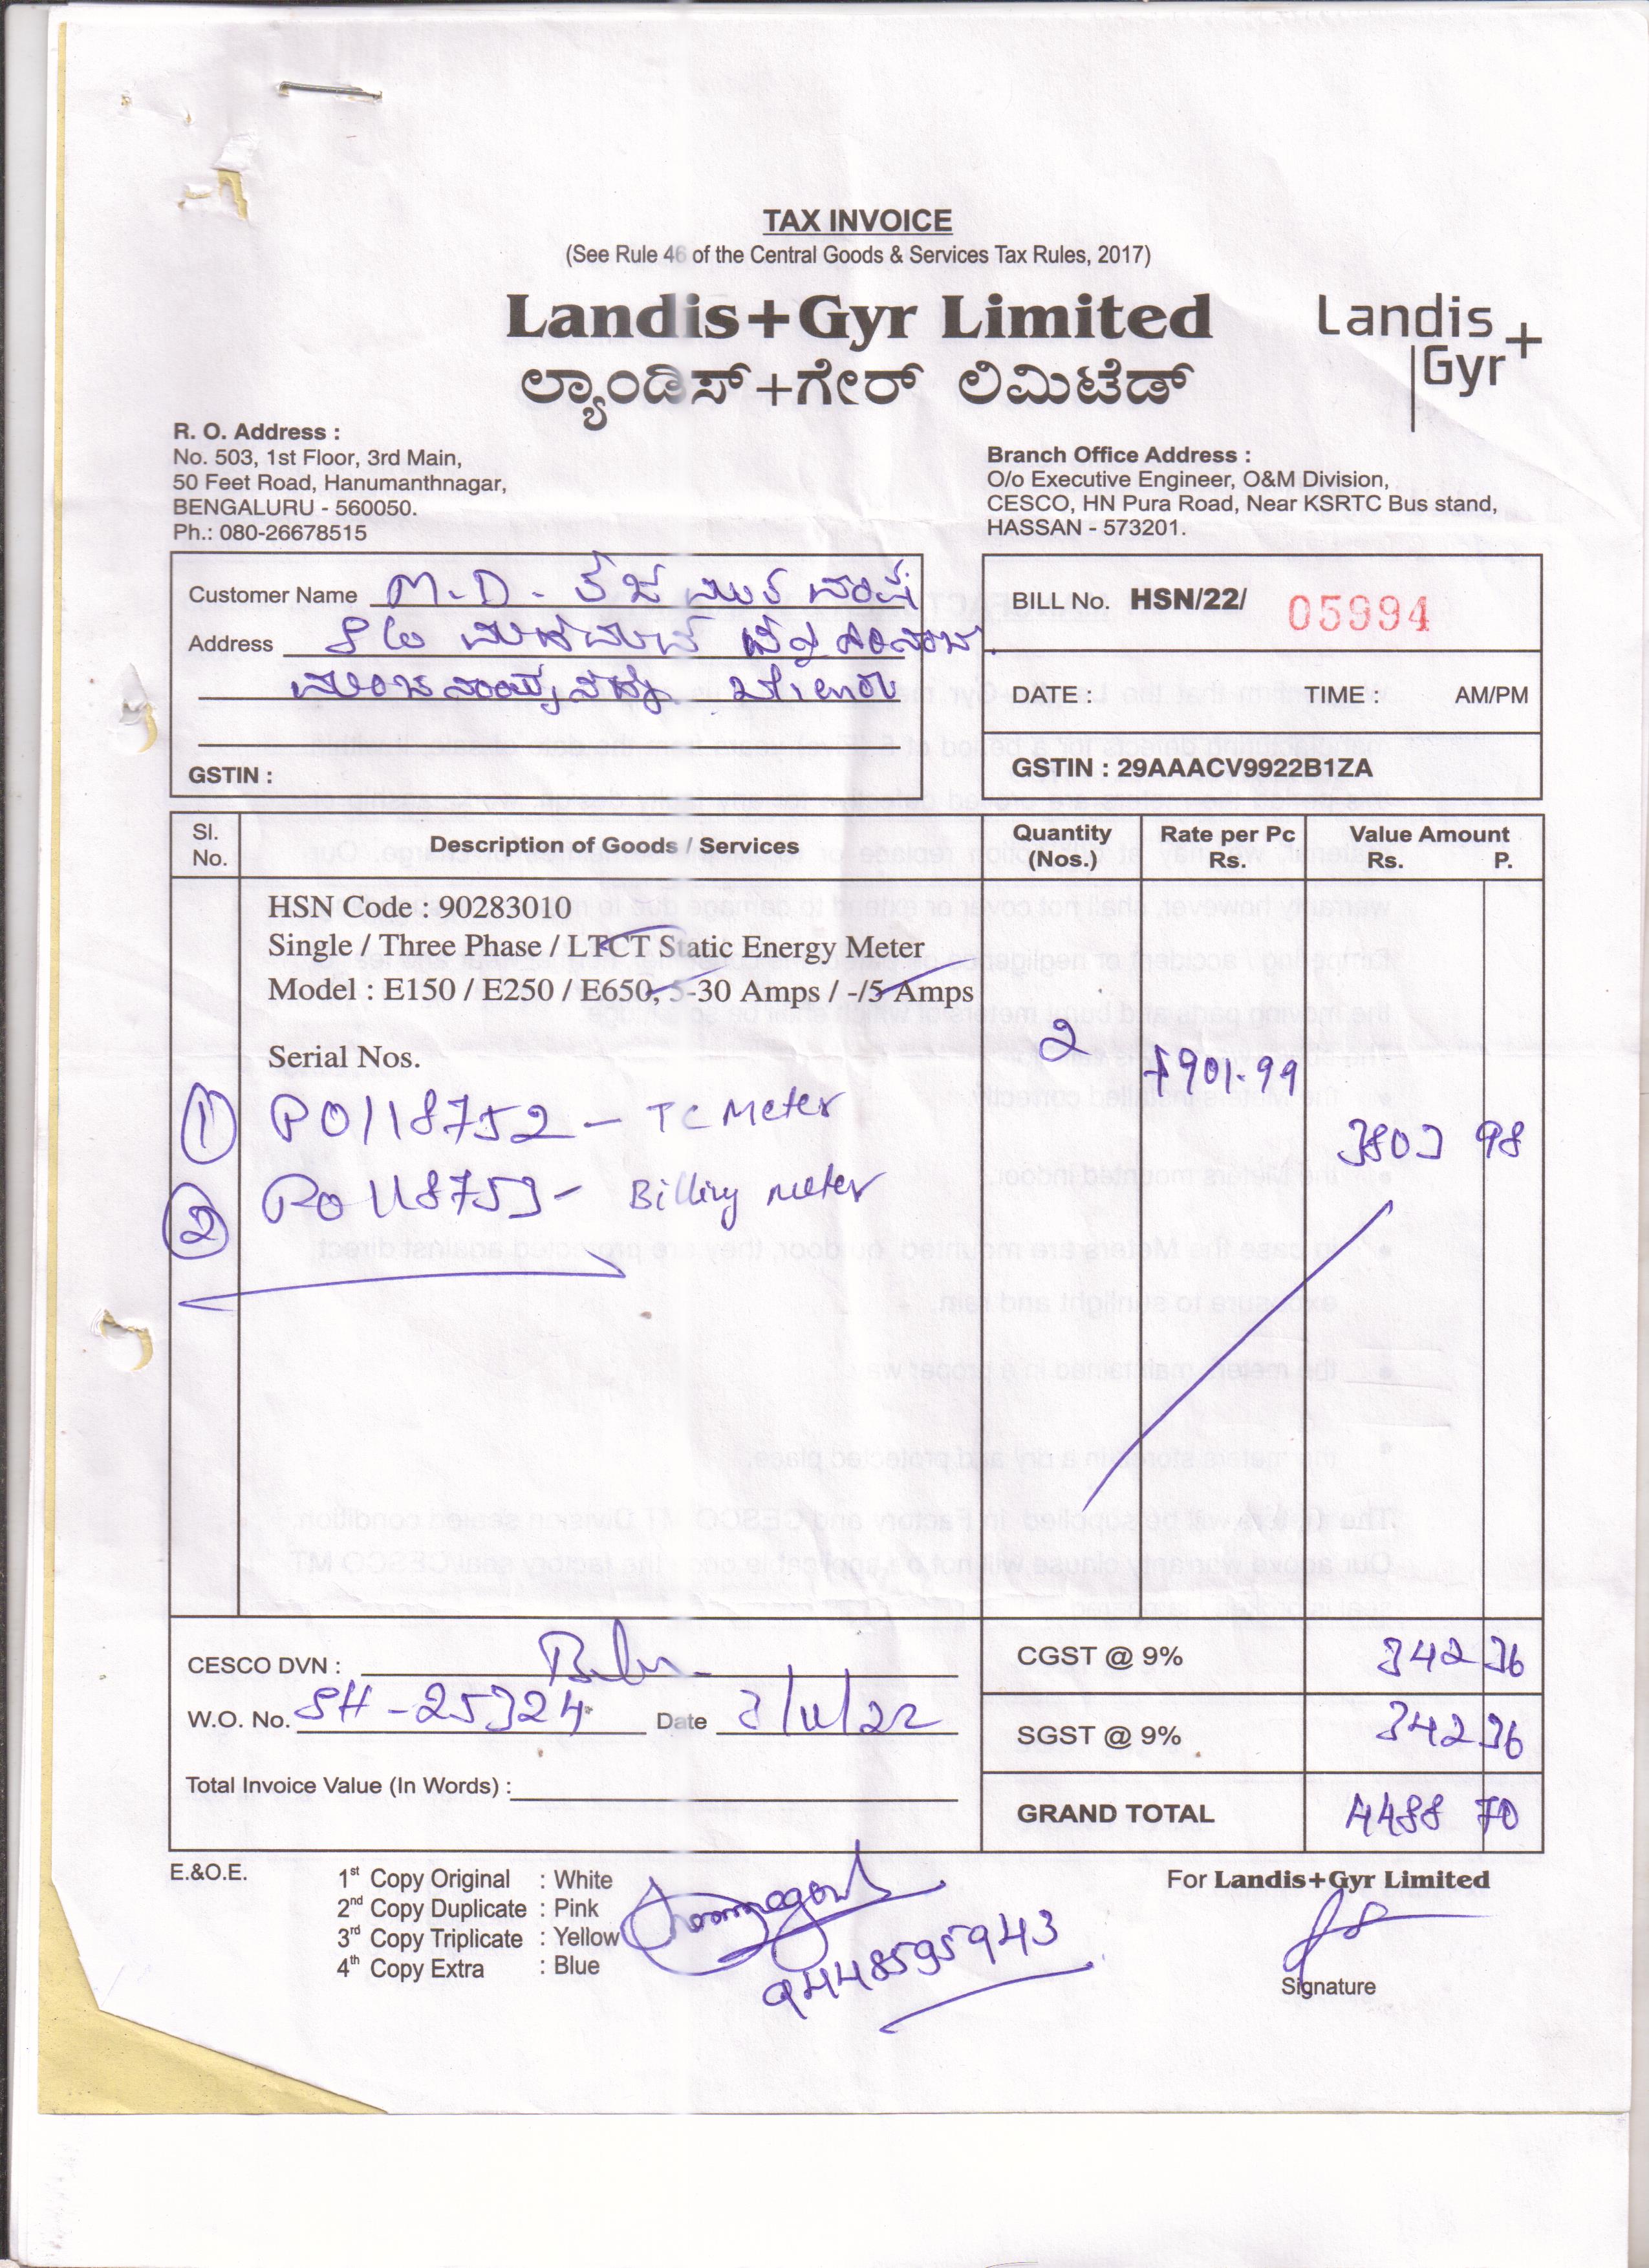 TAX INVOICE
(See Rule 46 of the Central Goods & Services Tax Rules, 2017)
Landis+Gyr Limited
Landis
Gyr+
ಲ್ಯಾಂಡಿಸ್+ಗೇರ್ ಲಿಮಿಟೆಡ್
R. O. Address :
No. 503, 1st Floor, 3rd Main,
50 Feet Road, Hanumanthnagar,
BENGALURU - 560050.
Ph.: 080-26678515
Branch Office Address :
O/o Executive Engineer, O&M Division,
CESCO, HN Pura Road, Near KSRTC Bus stand,
HASSAN - 573201.
Customer Name M.D.
Address
GSTIN :
BILL No. HSN/22/ 05994
DATE : TIME : AM/PM
GSTIN : 29AAACV9922B1ZA
Sl. No. Description of Goods / Services Quantity (Nos.) Rate per Pc Rs. Value Amount Rs. P.
HSN Code : 90283010
Single / Three Phase / LTCT Static Energy Meter
Model : E150 / E250 / E650, 5-30 Amps / -/5 Amps
Serial Nos. 2 1901.99
① P0118752 - TC Meter 3803 98
② P0118753 - Billing meter
CESCO DVN :
W.O. No. SH-25324 Date 3/11/22
Total Invoice Value (In Words) :
CGST @ 9% 342 36
SGST @ 9% 342 36
GRAND TOTAL 4488 70
E.&O.E.
1st Copy Original : White
2nd Copy Duplicate : Pink
3rd Copy Triplicate : Yellow
4th Copy Extra : Blue
9448595943
For Landis+Gyr Limited
Signature